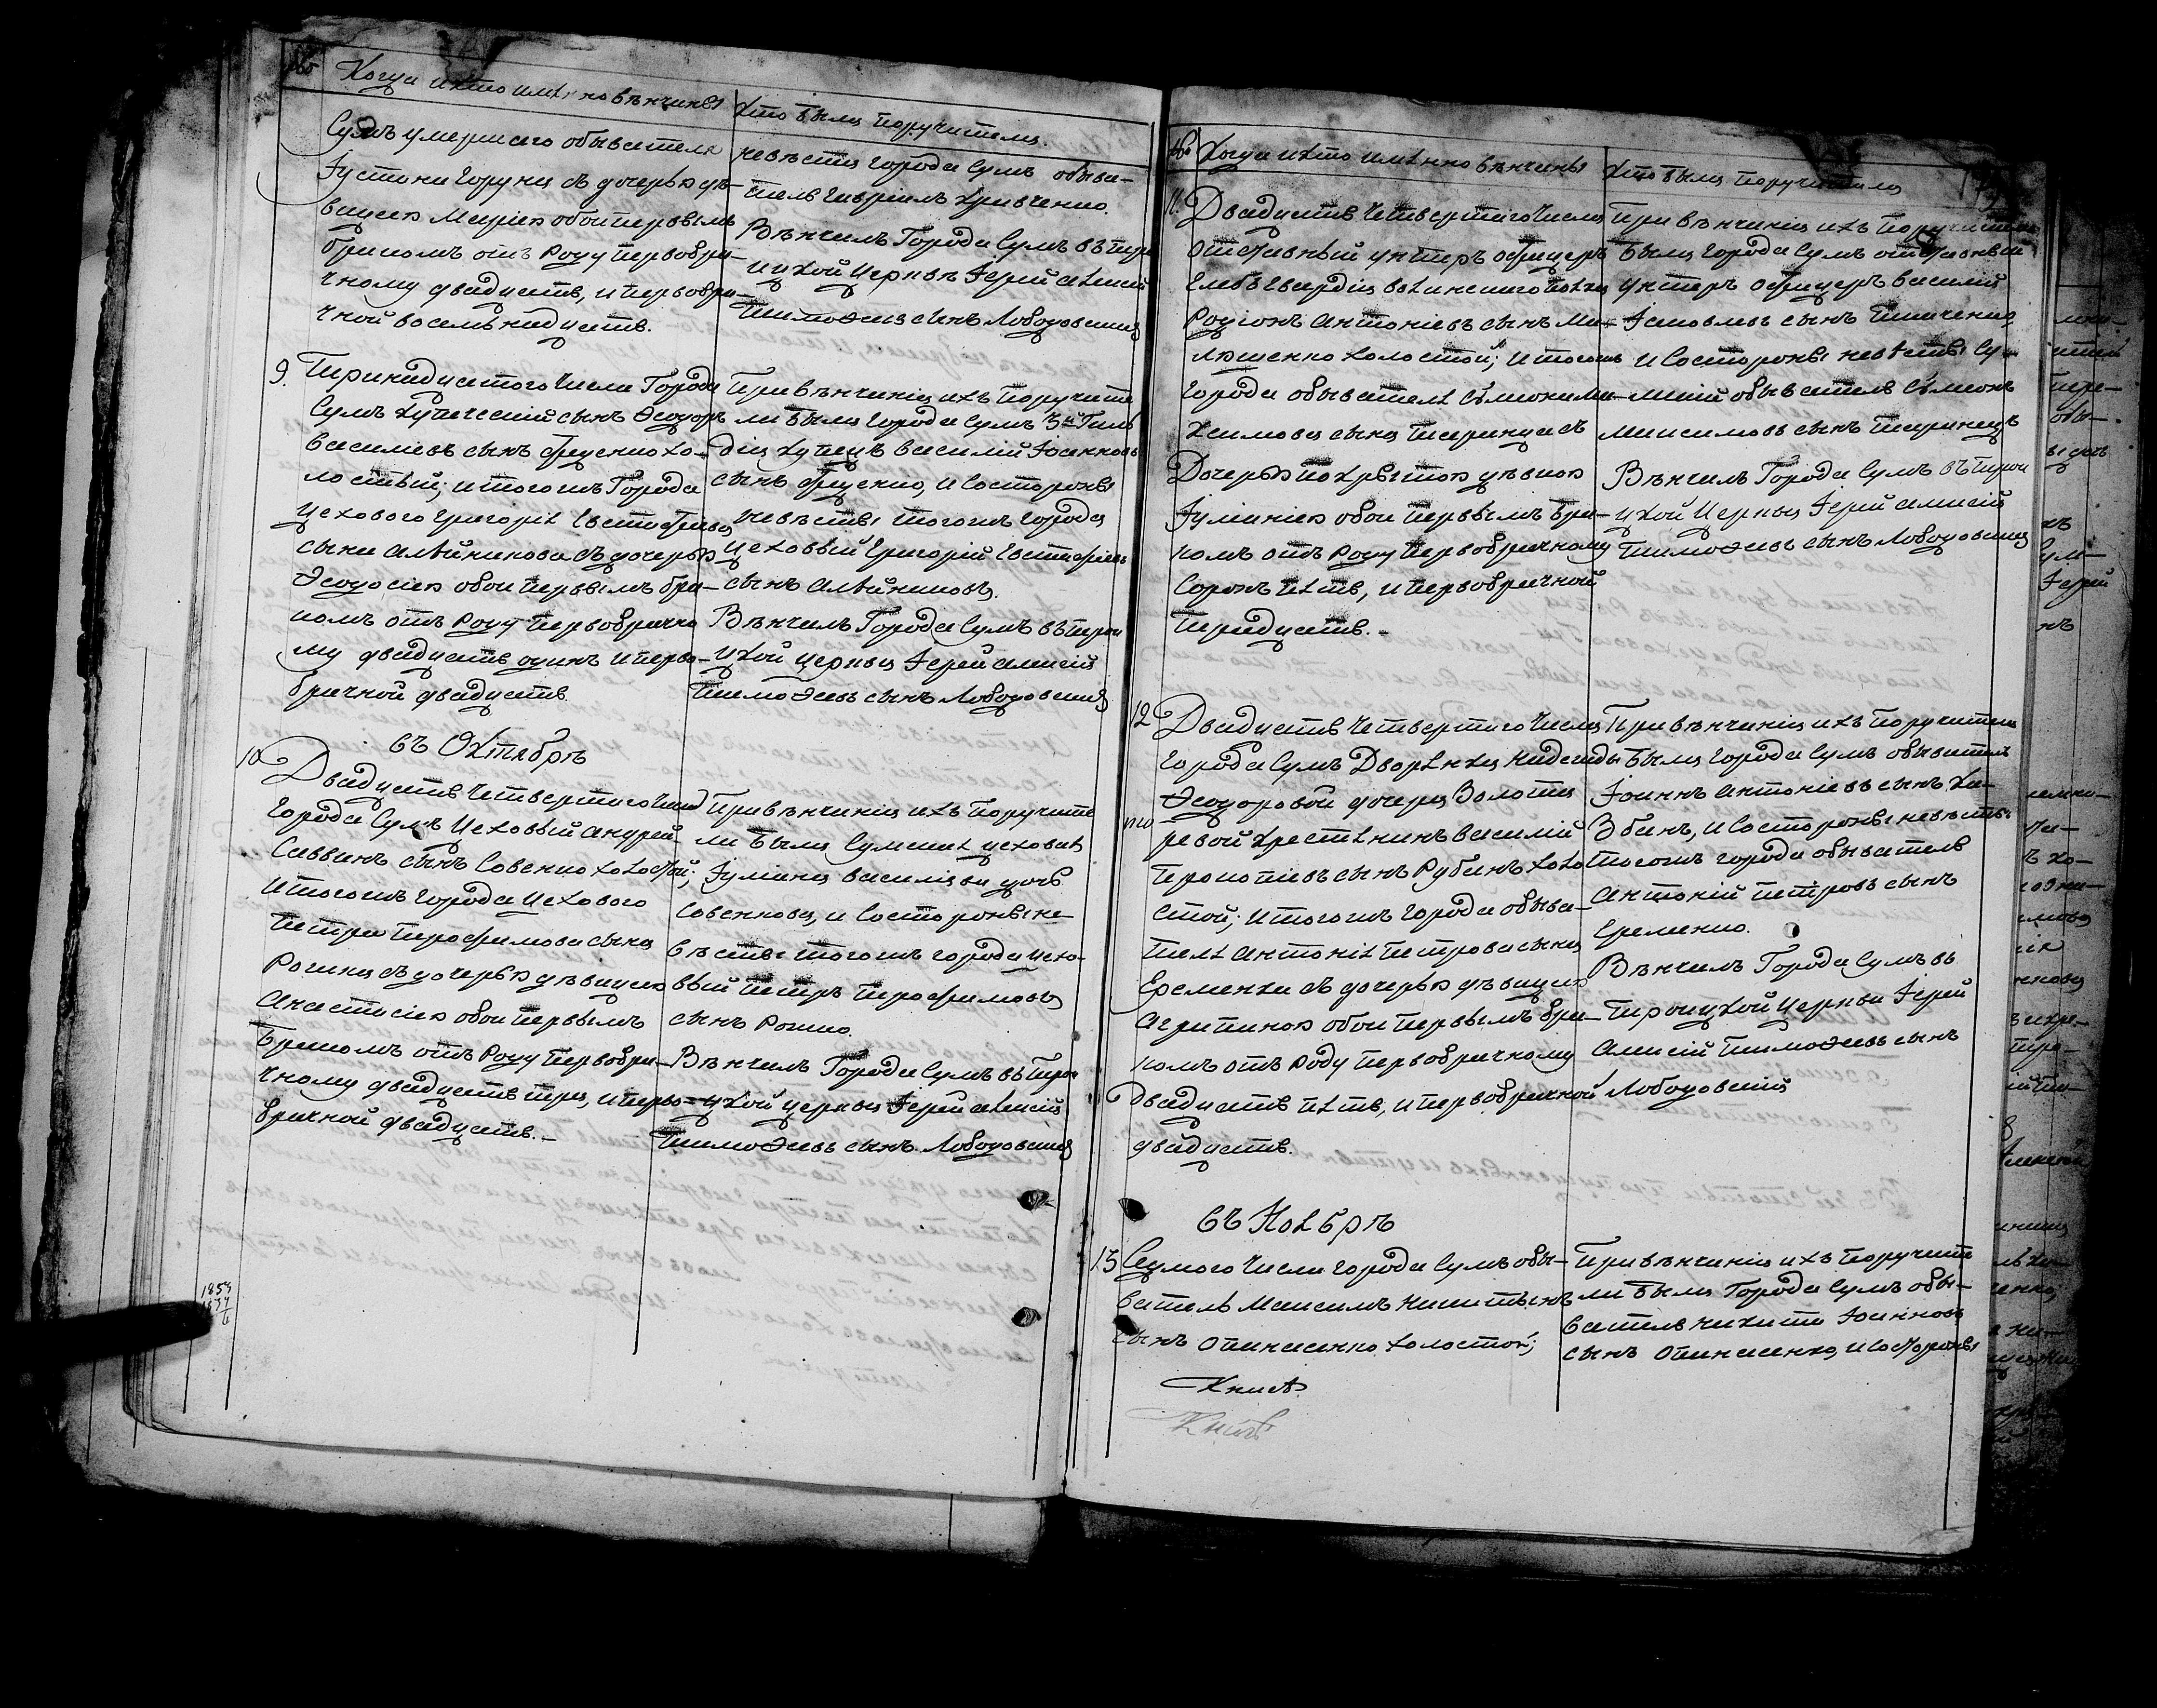 № Когда и кто именно венчаны
Кто были поручители.
Сумъ умершаго обывателя
Іустина Горуна съ дочерью дѣ-
вицею Маріею обои первымъ
бракомъ отъ роду первобра-
чному двадцать, и первобра-
чной восемьнадцать.
невѣсты города Сумъ обыва-
тель Гавріилъ Кривченко.
Вѣнчалъ Города Сумъ въ Трои
цкой Церкви Іерей Алексій
Тимоѳеевъ сынъ Лободовскій
9. Тринадцятого Числа Города
Сумъ купеческій сынъ Ѳеодоръ
Василіевъ сынъ Фесенко хо-
лостый; и тогожъ Города
цехового Григорія Евстафіева
сына Алѣйникова съ дочерью
Ѳеодосіею обои первымъ бра-
комъ отъ роду первобрачно
му двадцать одинъ и перво-
брачной двадцать.
При вѣнчаніи ихъ поручите
ли были Города Сумъ 3й Гиль
діи купецъ Василій Іоанновъ
сынъ Фесенко, и Состороны
невѣсты тогожъ города
Цеховый Григорій Евстафіевъ
сынъ Алѣйниковъ.
Вѣнчалъ Города Сумъ въ Трои
цкой церкви Іерей Алексій
Тимоѳеевъ сынъ Лободовскій
въ Октябрѣ
10 Двадцять Четвертого Числа
Города Сумъ Цеховый Андрей
Саввинъ сынъ Совенко холостой;
И тогожъ города цехового
Петра Трофимова сына
съ дочерью дѣвицею
Анастасіею обои первымъ
Бракомъ отъ роду первобра-
чному двадцать три, и перво-
брачной двадцать.
При вѣнчаніи ихъ поручите
ли были Сумская цеховая
Іуліана Василіева дочь
Совенкова, и Состороны не-
вѣсты тогожъ города цехо-
вый Петръ Трофимовъ
сынъ
Вѣнчалъ Города Сумъ въ Трои
цкой церкви Іерей Алексій
Тимоѳеевъ сынъ Лободовскій
1854
№ Когда и кто именно вѣнчаны
Кто были поручители
11. Двадцять Четвертого Числа
Отставный унтеръ офицеръ
Лейбъ Гвардіи полка
Родіонъ Антоніевъ сынъ Ми-
люшенко холостой; и тогожъ
Города обывателя Сѵмеона Ма-
ксимова сына Таранца съ
Дочерью дѣвкою
Іуліаніею обои первымъ бра-
комъ отъ роду первобрачному
Сорокъ пять, и первобрачной
Тридцать.-
При вѣнчаніи ихъ поручители
были города Сумъ отставный
Унтеръ офицеръ Василій
Іаковлевъ сынъ Ткаченко,
и Состороны невѣсты Су-
мскій обыватель Сѵмеонъ
Максимовъ сынъ Таранецъ
Вѣнчалъ Города Сумъ въ Трои
цкой Церкви Іерей Алексій
Тимоѳеевъ сынъ Лободовскій
12 Двадцять Четвертого Числа
Города Сумъ Дворянки Надежды
Ѳеодоровой дочери Золота
ревой крестянинъ Василій
Прокопіевъ сынъ Рубанъ холо
стой; и тогожъ города обыва-
теля Антонія Петрова сына
Еременка съ дочерью дѣвицею
Агрипиною обои первымъ бра-
комъ отъ роду первобрачному
Двадцать пять, и первобрачной
двадцать.
При вѣнчаніи ихъ поручители
были города Сумъ обыватель
Іоаннъ Антоніевъ сынъ Ка-
збанъ, и Состороны невѣсты
тогожъ города обыватель
Антоній Петровъ сынъ
Еременко.
Вѣнчалъ Города Сумъ въ
Троицкой церкви Іерей
Алексій Тимоѳеевъ сынъ
Лободовскій
въ Ноябрѣ
13 Седмого Числа города Сумъ обы-
ватель Максимъ Никитинъ
сынъ Опанасенко холостой;
При вѣнчаніи ихъ поручите
ли были Города Сумъ обы-
ватель Никита Іоанновъ
сынъ Опанасенко, и состороны